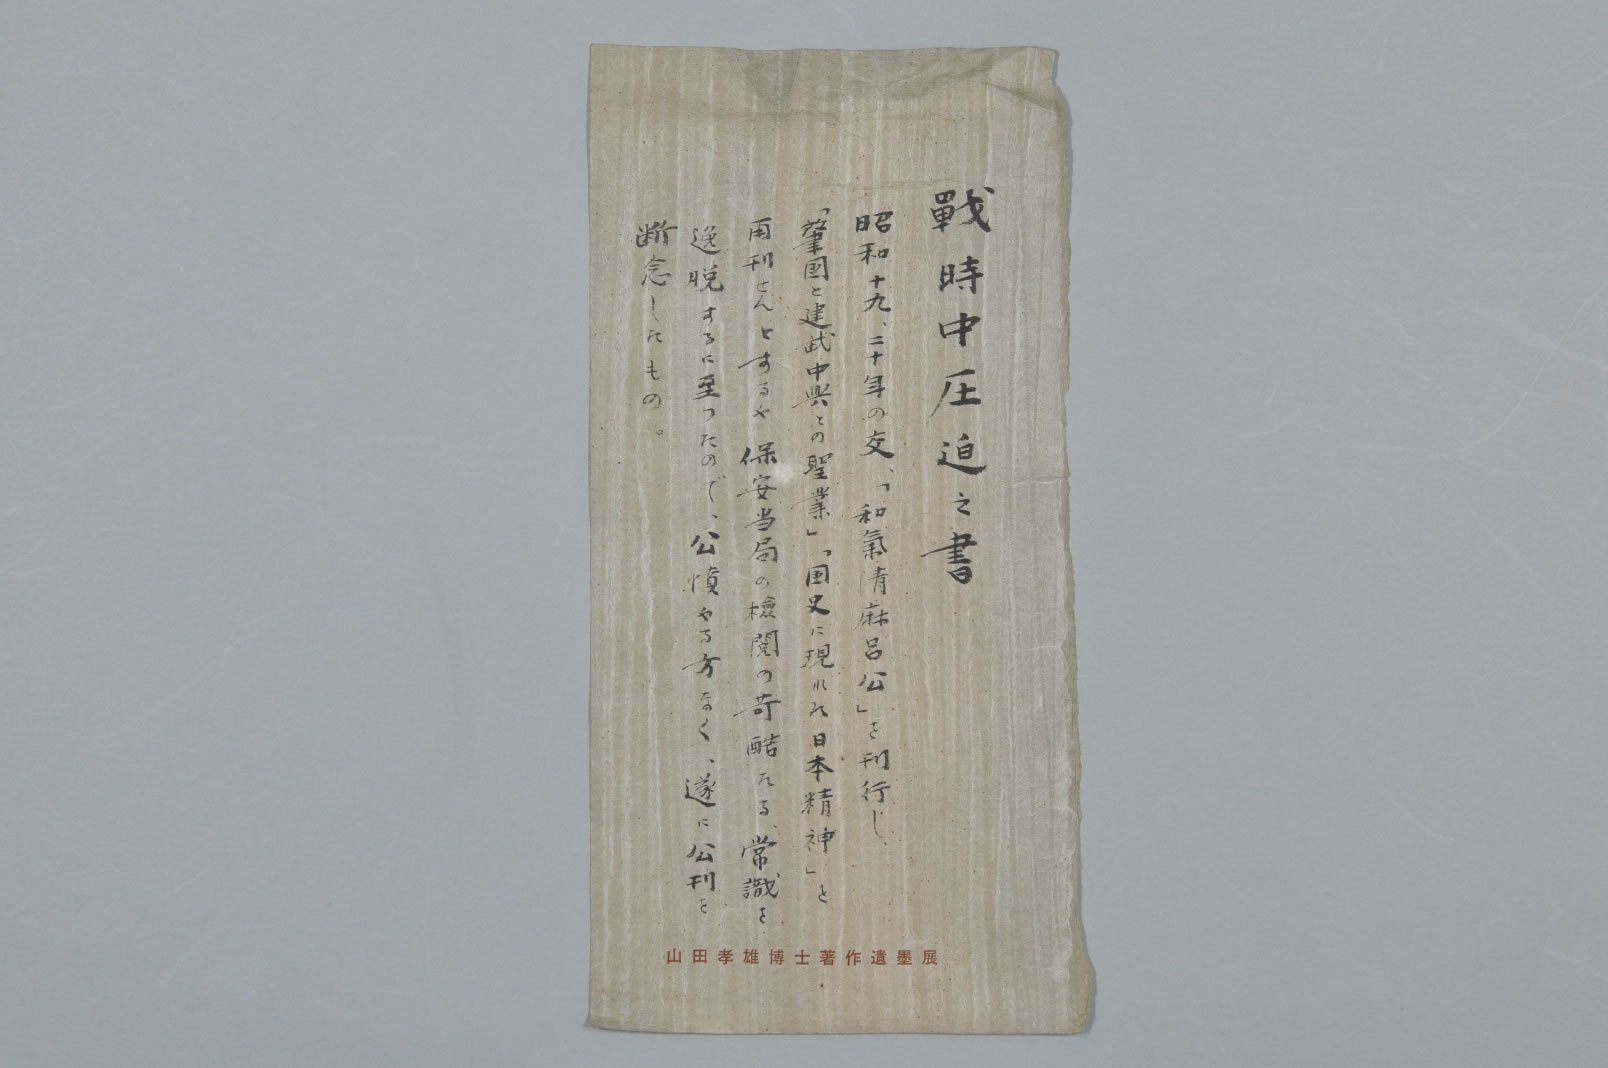 戰時中圧迫之書
昭和十九、二十年の交、「和氣清麻呂公」を刊行し、
「肇国と建武中興との聖業」「国史に現れた日本精神」を
再刊せんとするや保安当局の檢閲の苛酷なる、常識を
逸脱するに至つたので、公憤やる方なく、遂に公刊を
断念したもの。
山田孝雄博士著作遺墨展